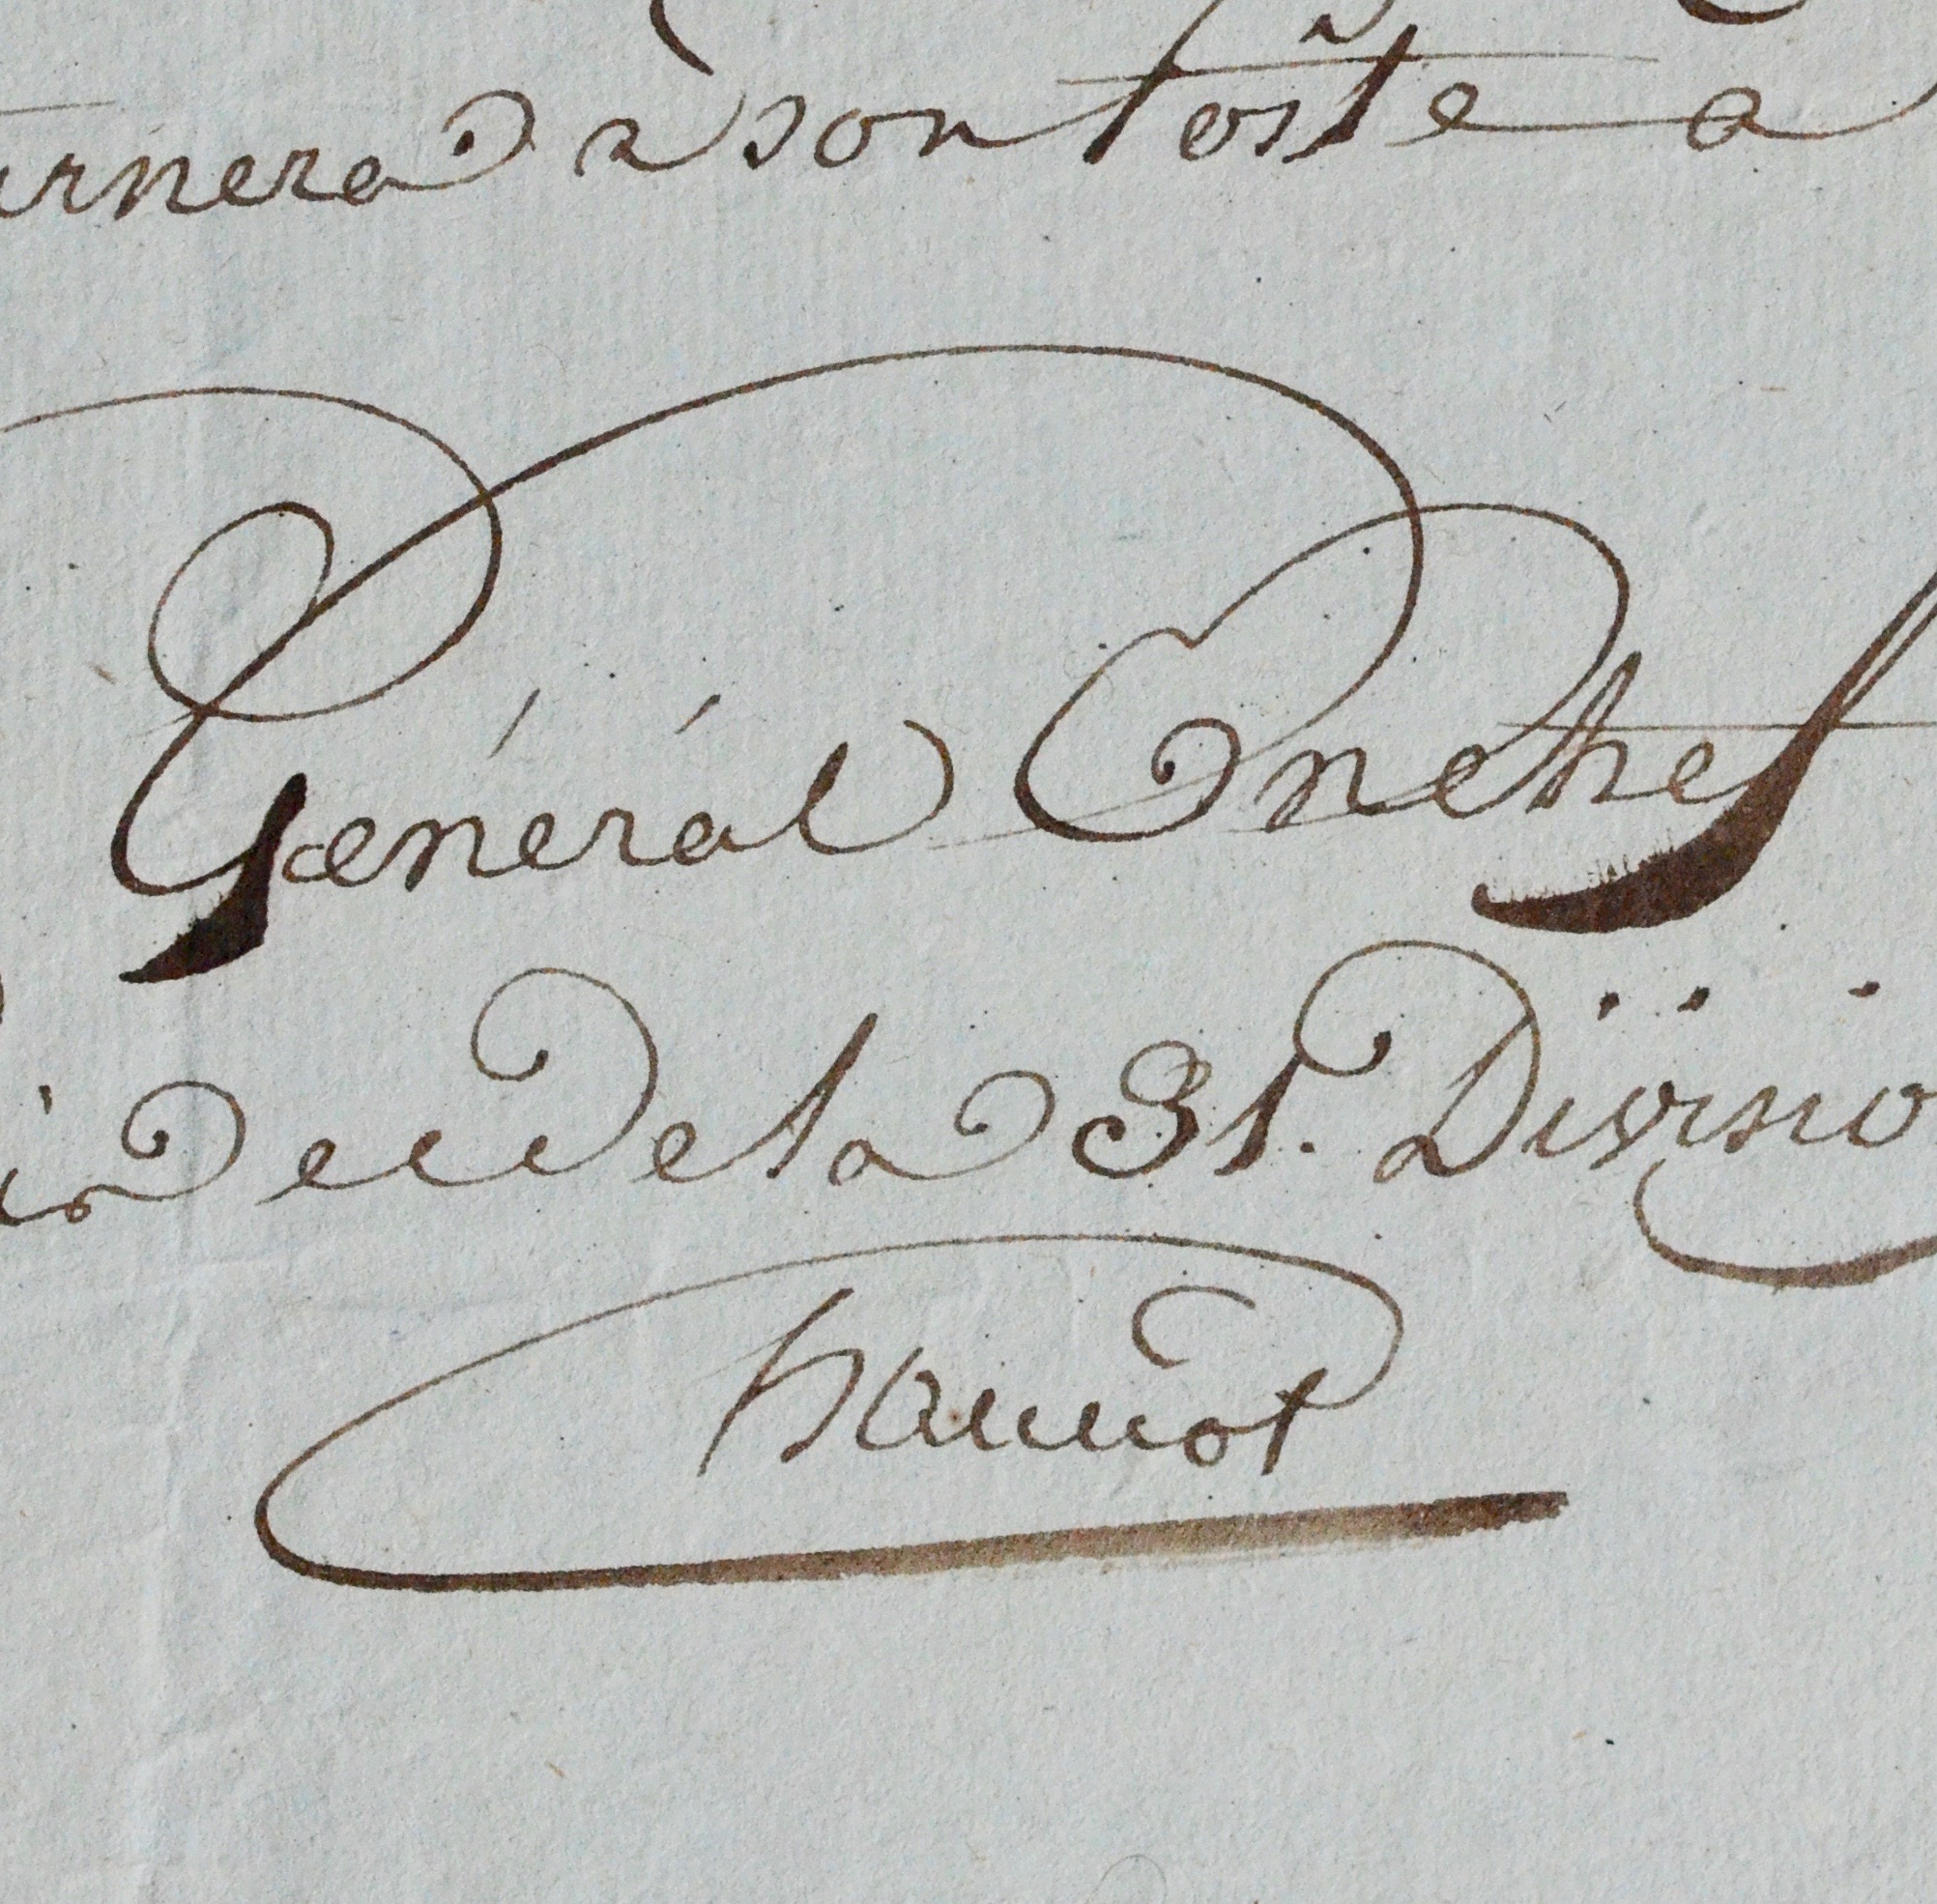 urnera à son Poste a
Général En chef
ie de la 31. Divisio
hanuot